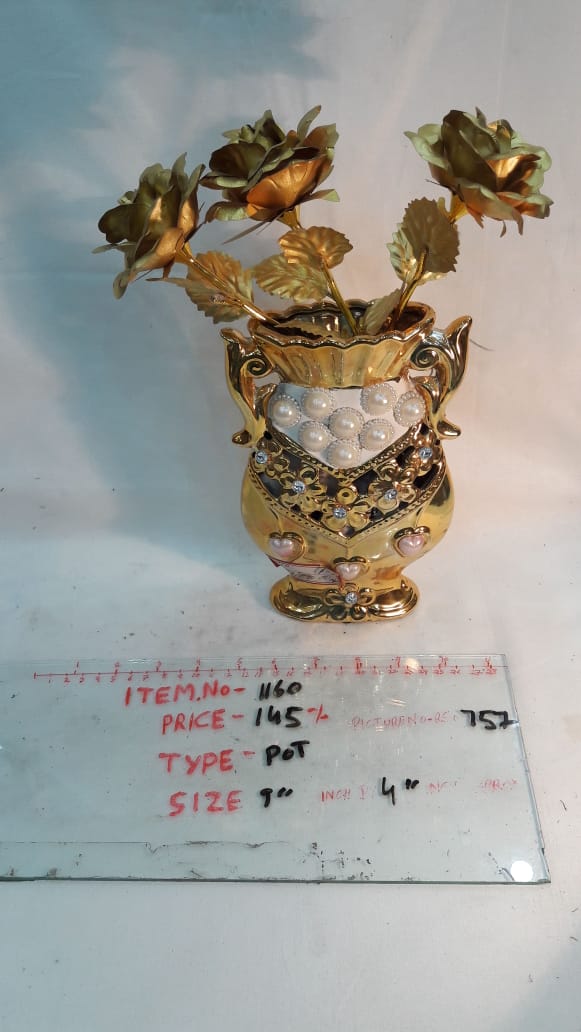 ITEM.No- 1160
PRICE - 145% PICTURE NO- 757
TYPE - POT
SIZE 9" INCH 4"